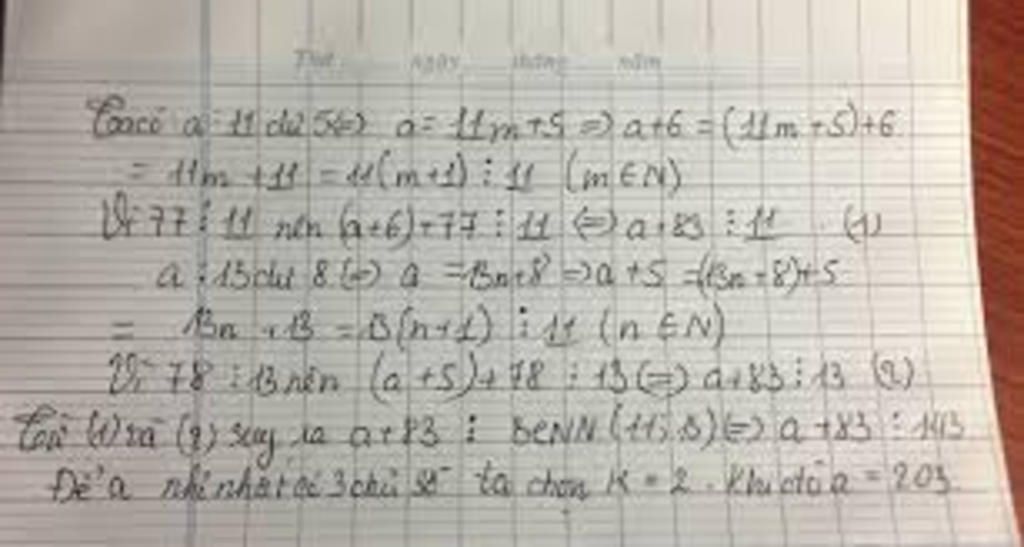 Thứ ngày tháng năm
Ta có a : 11 dư 5 <=> a = 11m+5 => a+6 = (11m+5)+6
= 11m+11 = 11(m+1) ⋮ 11 (m∈N)
Vì 77 ⋮ 11 nên (a+6)+77 ⋮ 11 <=> a+83 ⋮ 11 (1)
a : 13 dư 8 <=> a = 13n+8 => a+5 = (13n+8)+5
= 13n+13 = 13(n+1) ⋮ 11 (n∈N)
Vì 78 ⋮ 13 nên (a+5)+78 ⋮ 13 <=> a+83 ⋮ 13 (2)
Từ (1) và (2) suy ra a+83 ⋮ BCNN(11; 13) <=> a+83 ⋮ 143
Để a nhỏ nhất có 3 chữ số ta chọn k = 2. Khi đó a = 203